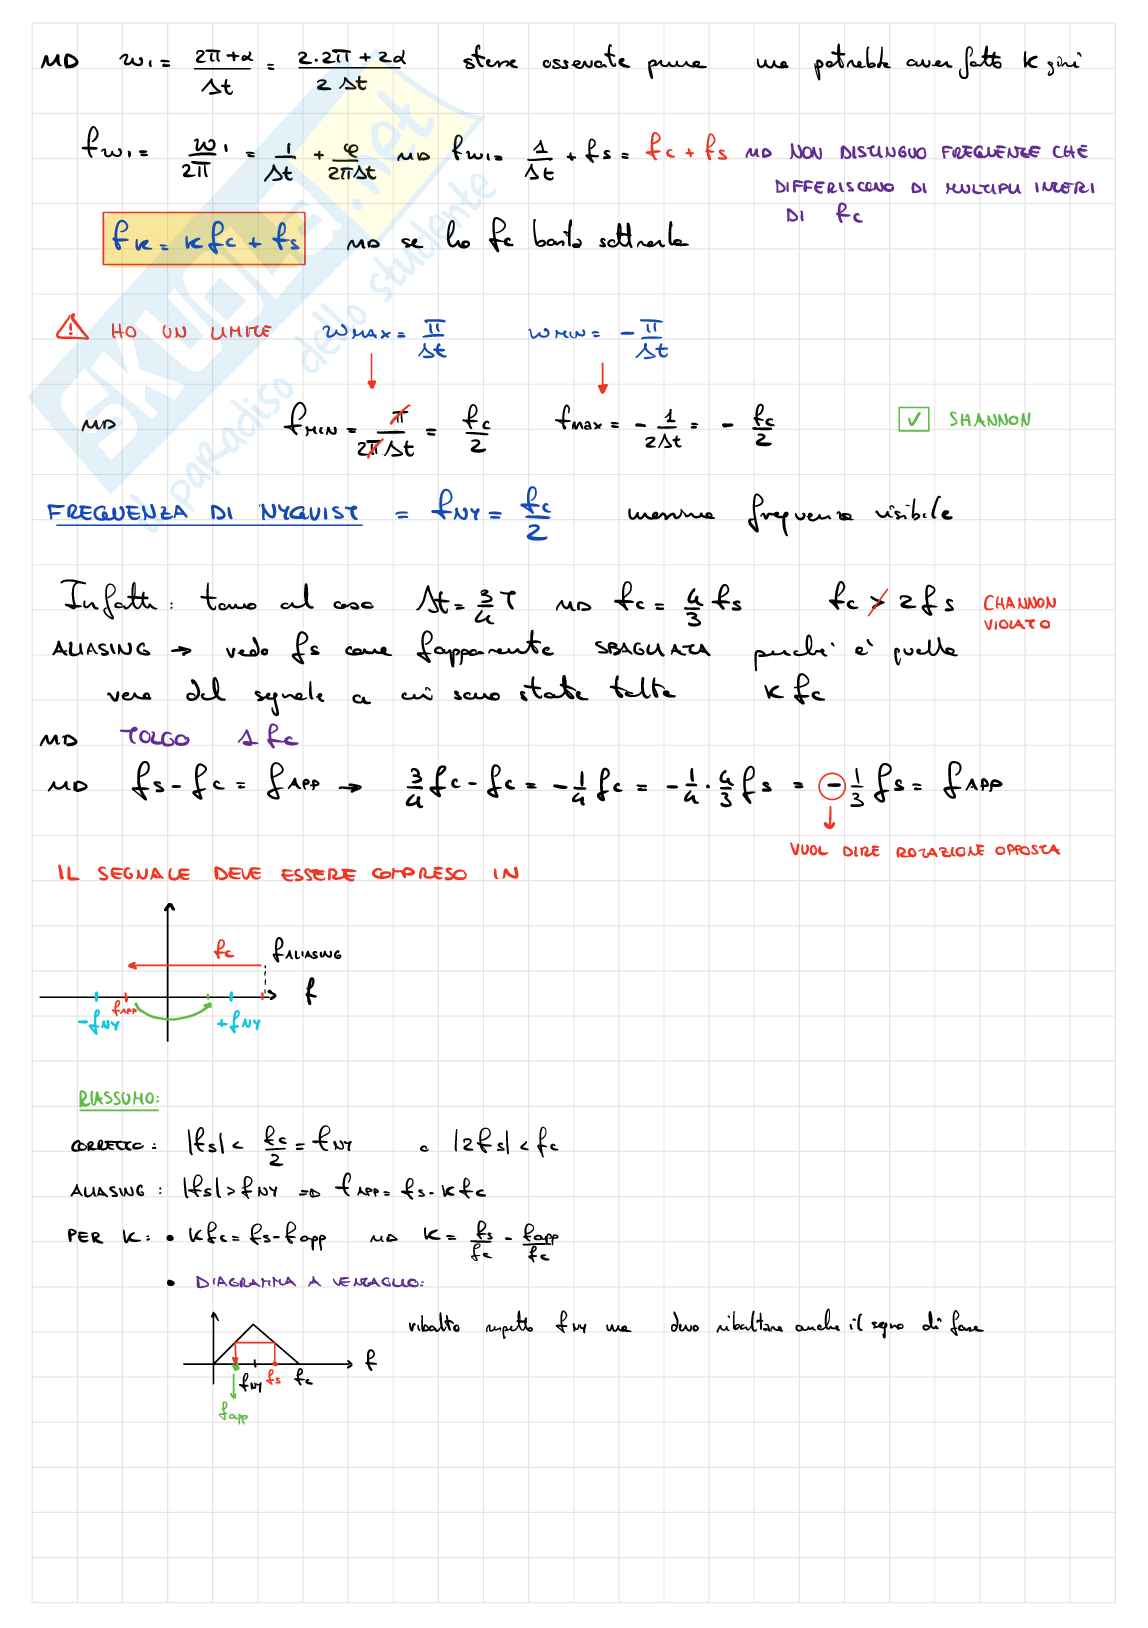 ⇒ ω₁ = (2π+α)/Δt = (2·2π+2α)/(2Δt) stesse osservate prima ma potrebbe aver fatto K giri
fω₁ = ω₁/2π = 1/Δt + φ/(2πΔt) ⇒ fω₁ = 1/Δt + fs = fc + fs ⇒ NON DISTINGUO FREQUENZE CHE
DIFFERISCONO DI MULTIPLI INTERI
DI fc
fK = K fc + fs ⇒ se ho fc basta sottrarla
⚠ HO UN LIMITE ωMAX = π/Δt ωMIN = - π/Δt
⇒ fMIN = π/(2πΔt) = fc/2 fmax = - 1/(2Δt) = - fc/2 ✓ SHANNON
FREQUENZA DI NYQUIST = fNY = fc/2 massima frequenza visibile
Infatti: torno al caso Δt = 3/4 T ⇒ fc = 4/3 fs fc ≯ 2 fs CHANNON
VIOLATO
ALIASING → vedo fs come fapparente SBAGLIATA perché è quella
vera del segnale a cui sono state tolte K fc
⇒ TOLGO 1 fc
⇒ fs - fc = fAPP → 3/4 fc - fc = - 1/4 fc = - 1/4 · 4/3 fs = - 1/3 fs = fAPP
VUOL DIRE ROTAZIONE OPPOSTA
IL SEGNALE DEVE ESSERE COMPRESO IN
fc fALIASING
f
fAPP
-fNY +fNY
RIASSUMO:
CORRETTO: |fs| < fc/2 = fNY o |2fs| < fc
ALIASING: |fs| > fNY ⇒ fAPP = fs - K fc
PER K: • K fc = fs - fapp ⇒ K = fs/fc - fapp/fc
• DIAGRAMMA A VENTAGLIO:
ribalto rispetto fNY ma devo ribaltare anche il segno di fase
f
fNY fs fc
fapp
SKUOLA.net
il paradiso dello studente